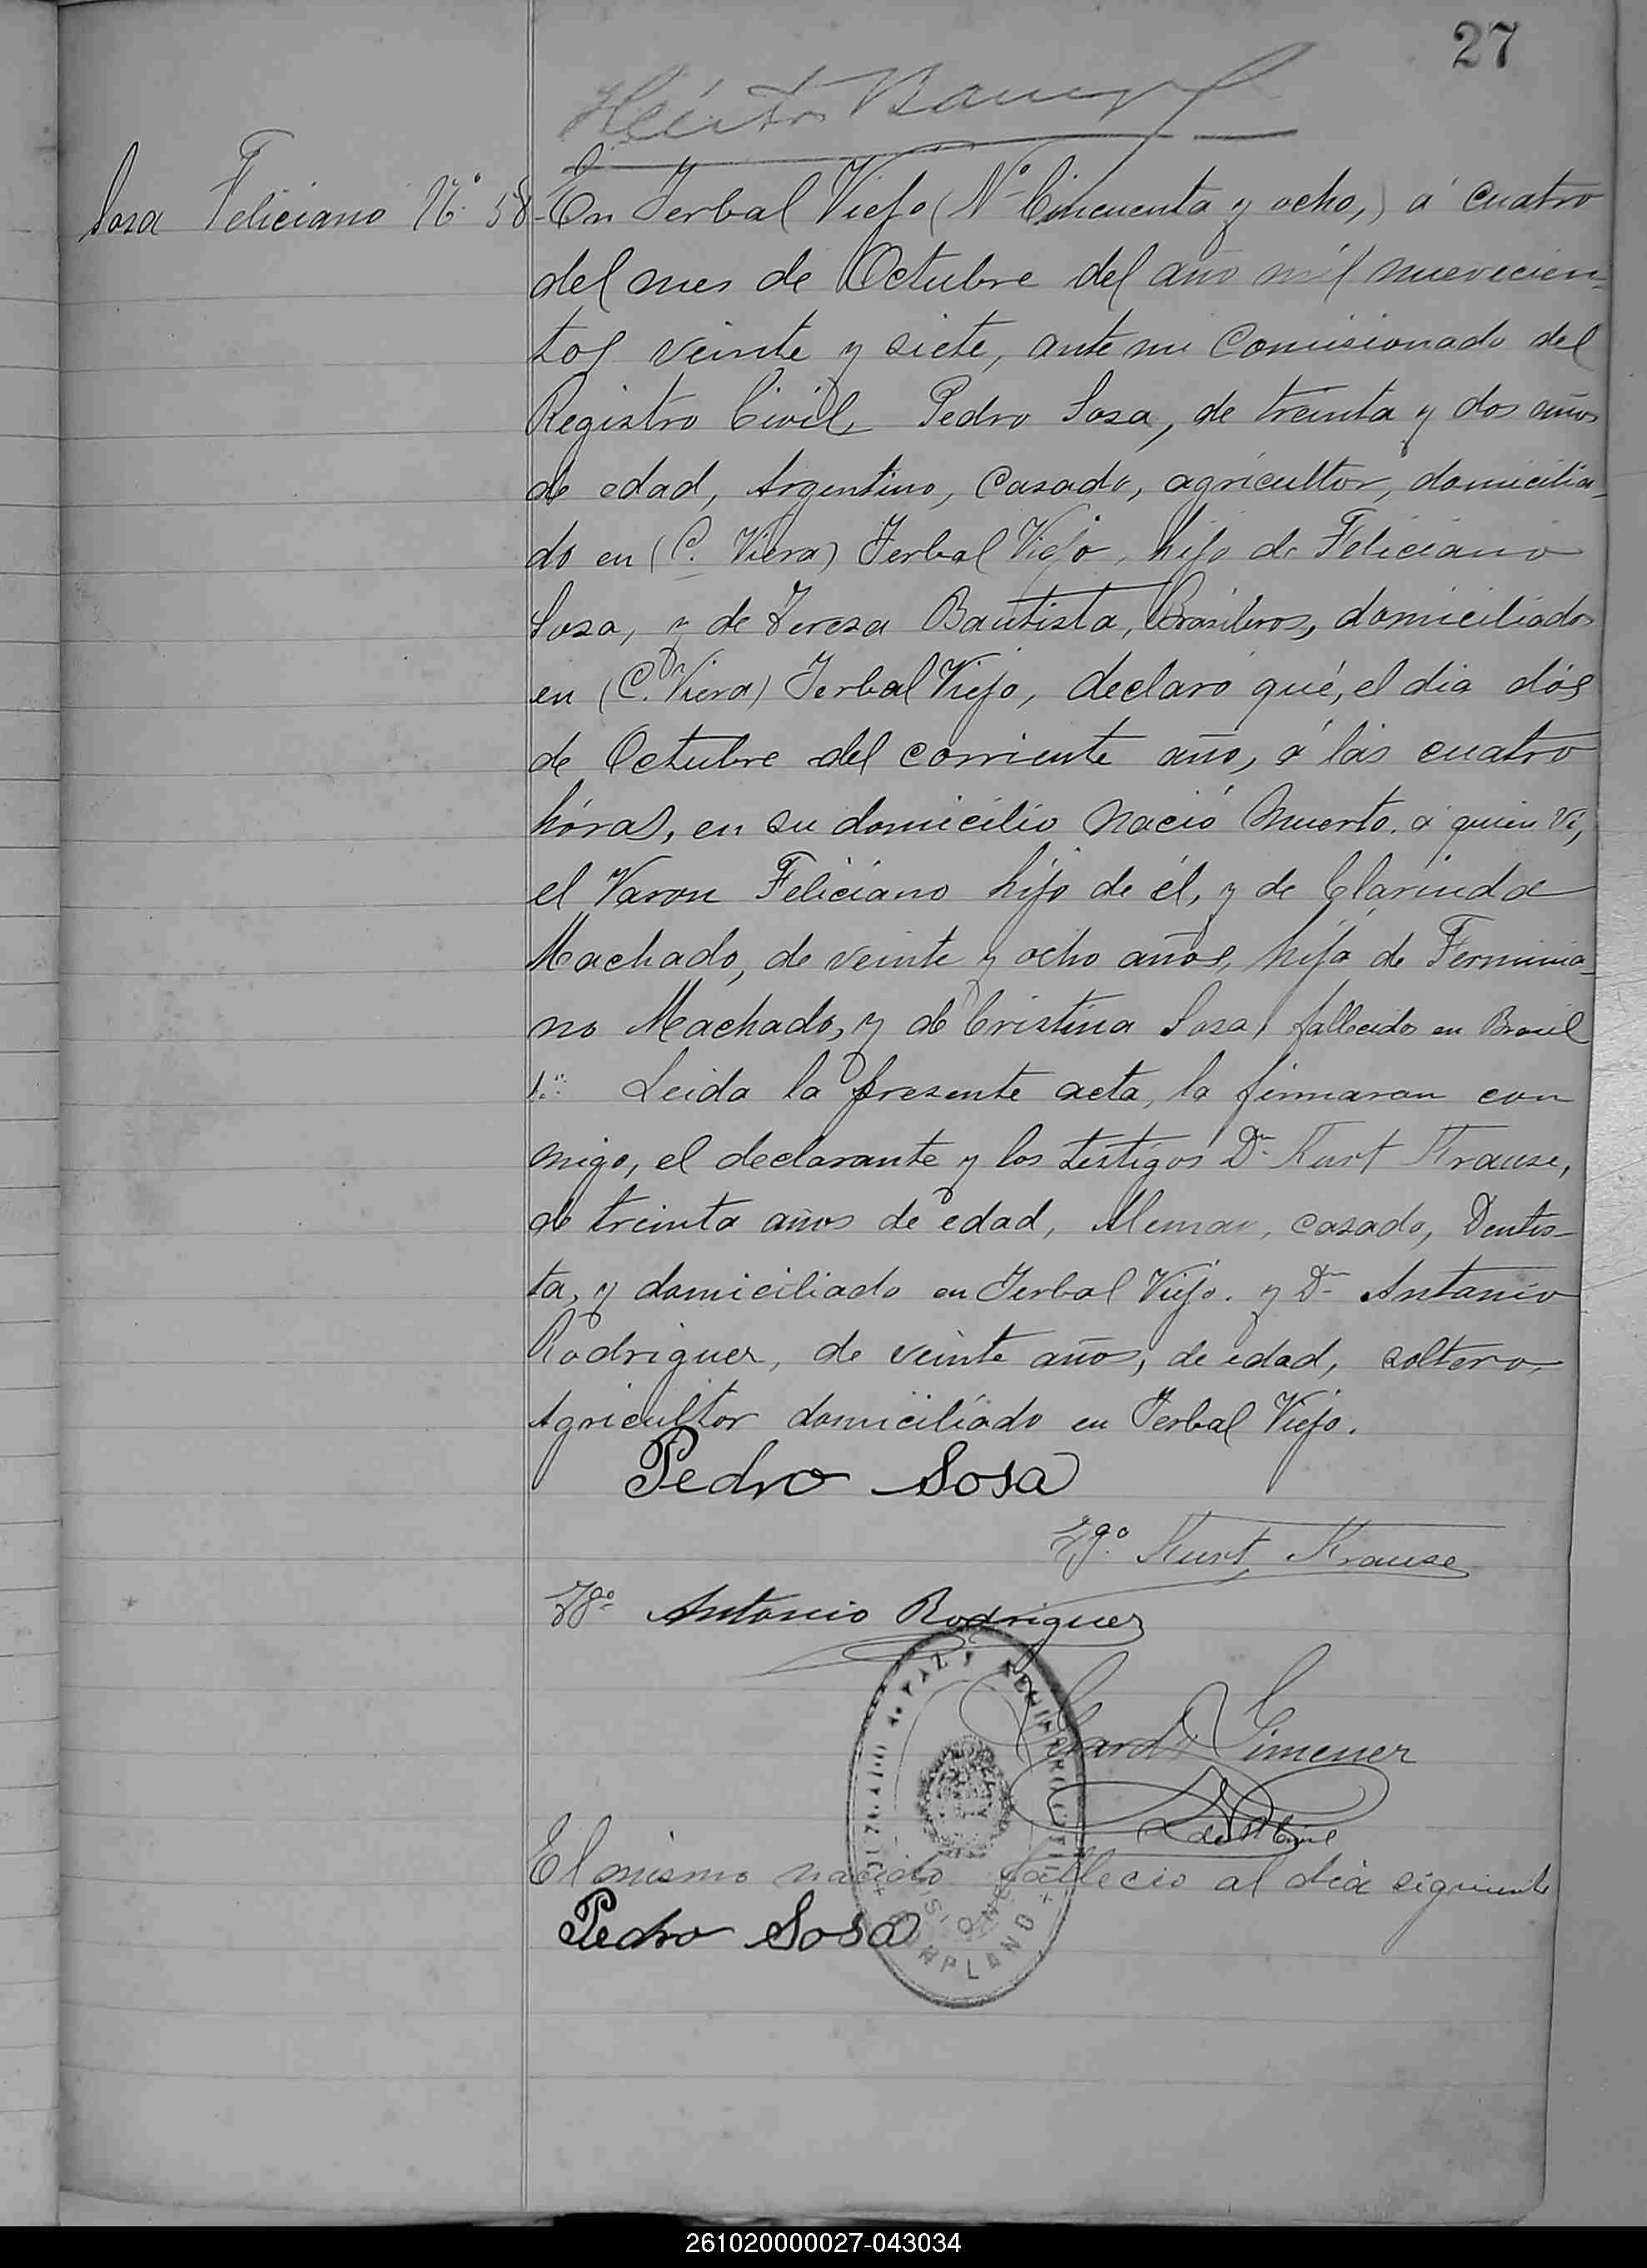 27
Sosa Feliciano Nº 58
En Yerbal Viejo (Nº Cincuenta y ocho,) á cuatro
del mes de Octubre del año mil nuevecien=
tos veinte y siete, ante mi Comisionado del
Registro Civil, Pedro Sosa, de treinta y dos años
de edad, Argentino, Casado, agricultor, domicilia_
do en (C. Viera) Yerbal Viejo, hijo de Feliciano
Sosa, y de Teresa Bautista, Brasileros, domiciliados
en (C. Viera) Yerbal Viejo, declaró qué, el dia dós
de Octubre del corriente año, á las cuatro
hóras, en su domicilio Nació Muerto. á quien Ví,
el Varon Feliciano hijo de él, y de Clarinda
Machado, de veinte y ocho años, hija de Ferminia_
no Machado, y de Cristina Sosa, fallecidos en Brasil
Leida la presente acta, la firmaron con
migo, el declarante y los testigos Dn Kurt Krause,
de treinta años de edad, Aleman, casado, Dentis_
ta, y domiciliado en Yerbal Viejo. y Dn Antonio
Rodriguez, de veinte años, de edad, soltero,
Agricultor domiciliado en Yerbal Viejo.
Pedro Sosa
Tgo. Kurt Krause
Tgo Antonio Rodriguez
Gimenez
El mismo nacido fallecio al dia siguiente
Pedro Sosa
261020000027-043034